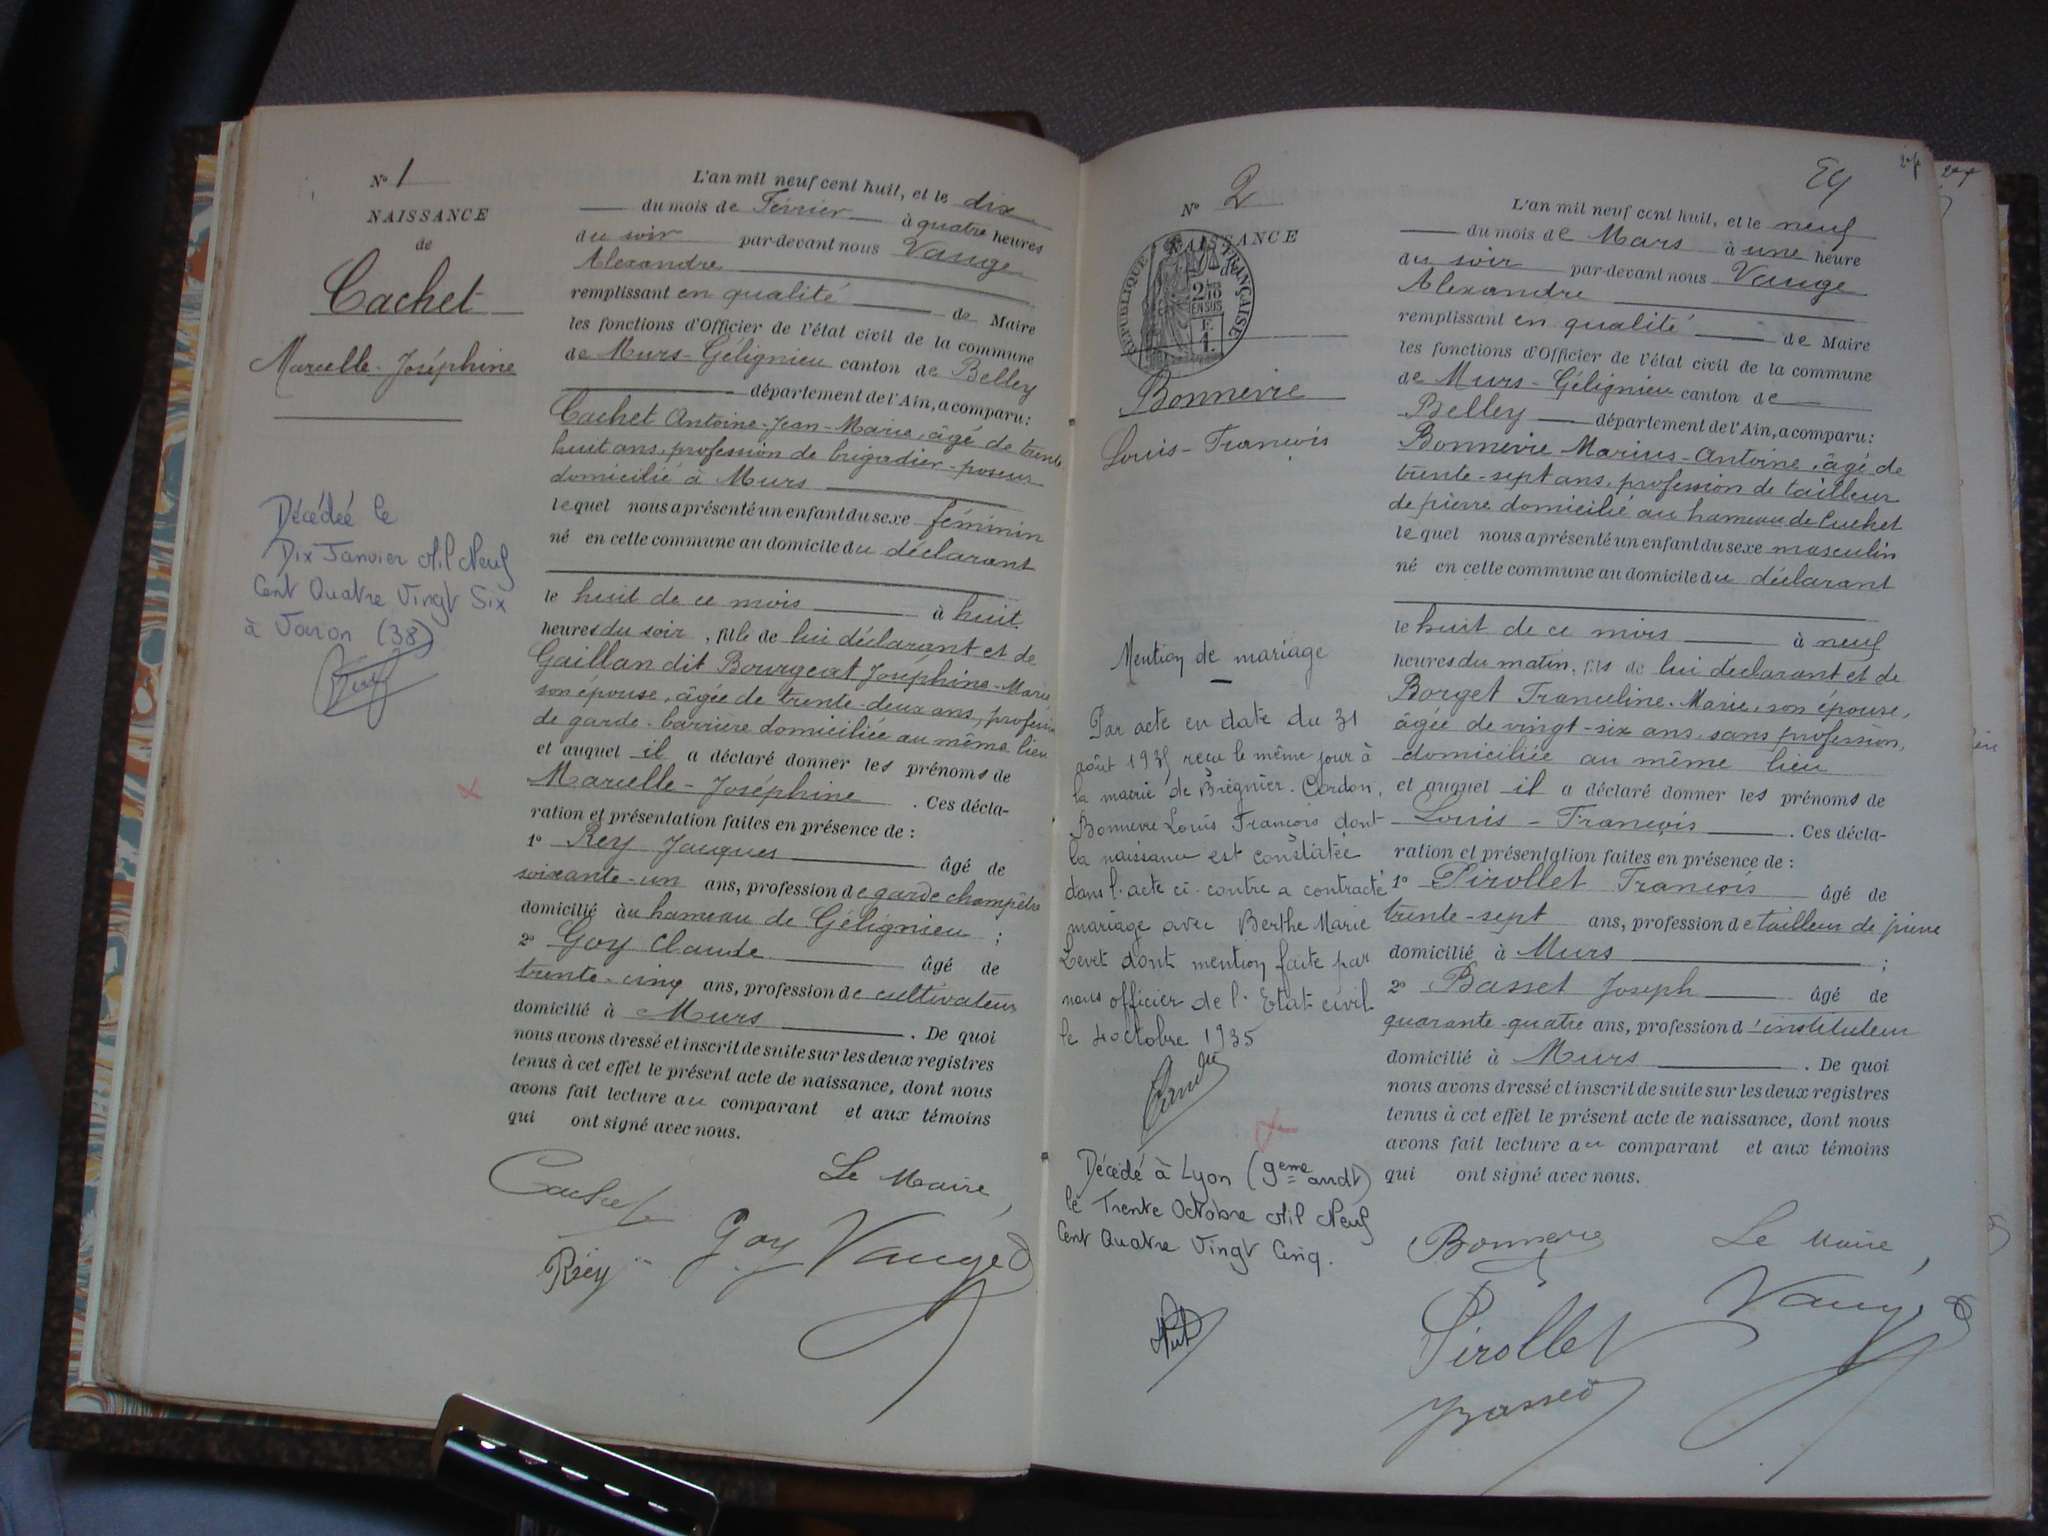 Nº 1
NAISSANCE
de
Cachet
Marcelle-Joséphine
Décédée le
Dix Janvier Mil Neuf
Cent Quatre Vingt Six
à Voiron (38)
L'an mil neuf cent huit, et le dix
du mois de Février à quatre heures
du soir par-devant nous Vauge
Alexandre
remplissant en qualité de Maire
les fonctions d'Officier de l'état civil de la commune
de Murs-Gélignieu canton de Belley
département de l'Ain, a comparu:
Cachet Antoine-Jean-Marie, âgé de trente
huit ans, profession de brigadier-poseur
domicilié à Murs
lequel nous a présenté un enfant du sexe féminin
né en cette commune au domicile du déclarant
le huit de ce mois à huit
heures du soir, fille de lui déclarant et de
Gaillan dit Bourgeat Joséphine-Marie
son épouse, âgée de trente-deux ans, profession
de garde-barrière domiciliée au même lieu
et auquel il a déclaré donner les prénoms de
Marcelle-Joséphine. Ces décla-
ration et présentation faites en présence de:
1º Rey Jacques âgé de
soixante-un ans, profession de garde champêtre
domicilié au hameau de Gélignieu;
2º Goy Claude âgé de
trente-cinq ans, profession de cultivateur
domicilié à Murs. De quoi
nous avons dressé et inscrit de suite sur les deux registres
tenus à cet effet le présent acte de naissance, dont nous
avons fait lecture au comparant et aux témoins
qui ont signé avec nous.
Le Maire,
Cachet
Rey Goy Vauge
24
Nº 2
NAISSANCE
de
RÉPUBLIQUE FRANÇAISE
2/10
EN SUS
F.
1.
Bonnevie
Louis-François
Mention de mariage
Par acte en date du 31
août 1935 reçu le même jour à
la mairie de Brégnier-Cordon,
Bonnevie Louis François dont
la naissance est constatée
dans l'acte ci-contre a contracté
mariage avec Berthe Marie
Levet dont mention faite par
nous officier de l'Etat-civil
le 4 octobre 1935
Décédé à Lyon (9eme arrdt)
le Trente Octobre Mil Neuf
Cent Quatre Vingt Cinq.
L'an mil neuf cent huit, et le neuf
du mois de Mars à une heure
du soir par-devant nous Vauge
Alexandre
remplissant en qualité de Maire
les fonctions d'Officier de l'état civil de la commune
de Murs-Gélignieu canton de
Belley département de l'Ain, a comparu:
Bonnevie Marius-Antoine, âgé de
trente-sept ans, profession de tailleur
de pierre domicilié au hameau de Cuchet
lequel nous a présenté un enfant du sexe masculin
né en cette commune au domicile du déclarant
le huit de ce mois à neuf
heures du matin, fils de lui déclarant et de
Borget Franceline-Marie, son épouse,
âgée de vingt-six ans, sans profession,
domiciliée au même lieu
et auquel il a déclaré donner les prénoms de
Louis-François. Ces décla-
ration et présentation faites en présence de:
1º Pirollet François âgé de
trente-sept ans, profession de tailleur de pierre
domicilié à Murs;
2º Basset Joseph âgé de
quarante-quatre ans, profession d'instituteur
domicilié à Murs. De quoi
nous avons dressé et inscrit de suite sur les deux registres
tenus à cet effet le présent acte de naissance, dont nous
avons fait lecture au comparant et aux témoins
qui ont signé avec nous.
Bonnevie Le Maire,
Pirollet Vauge
Basset